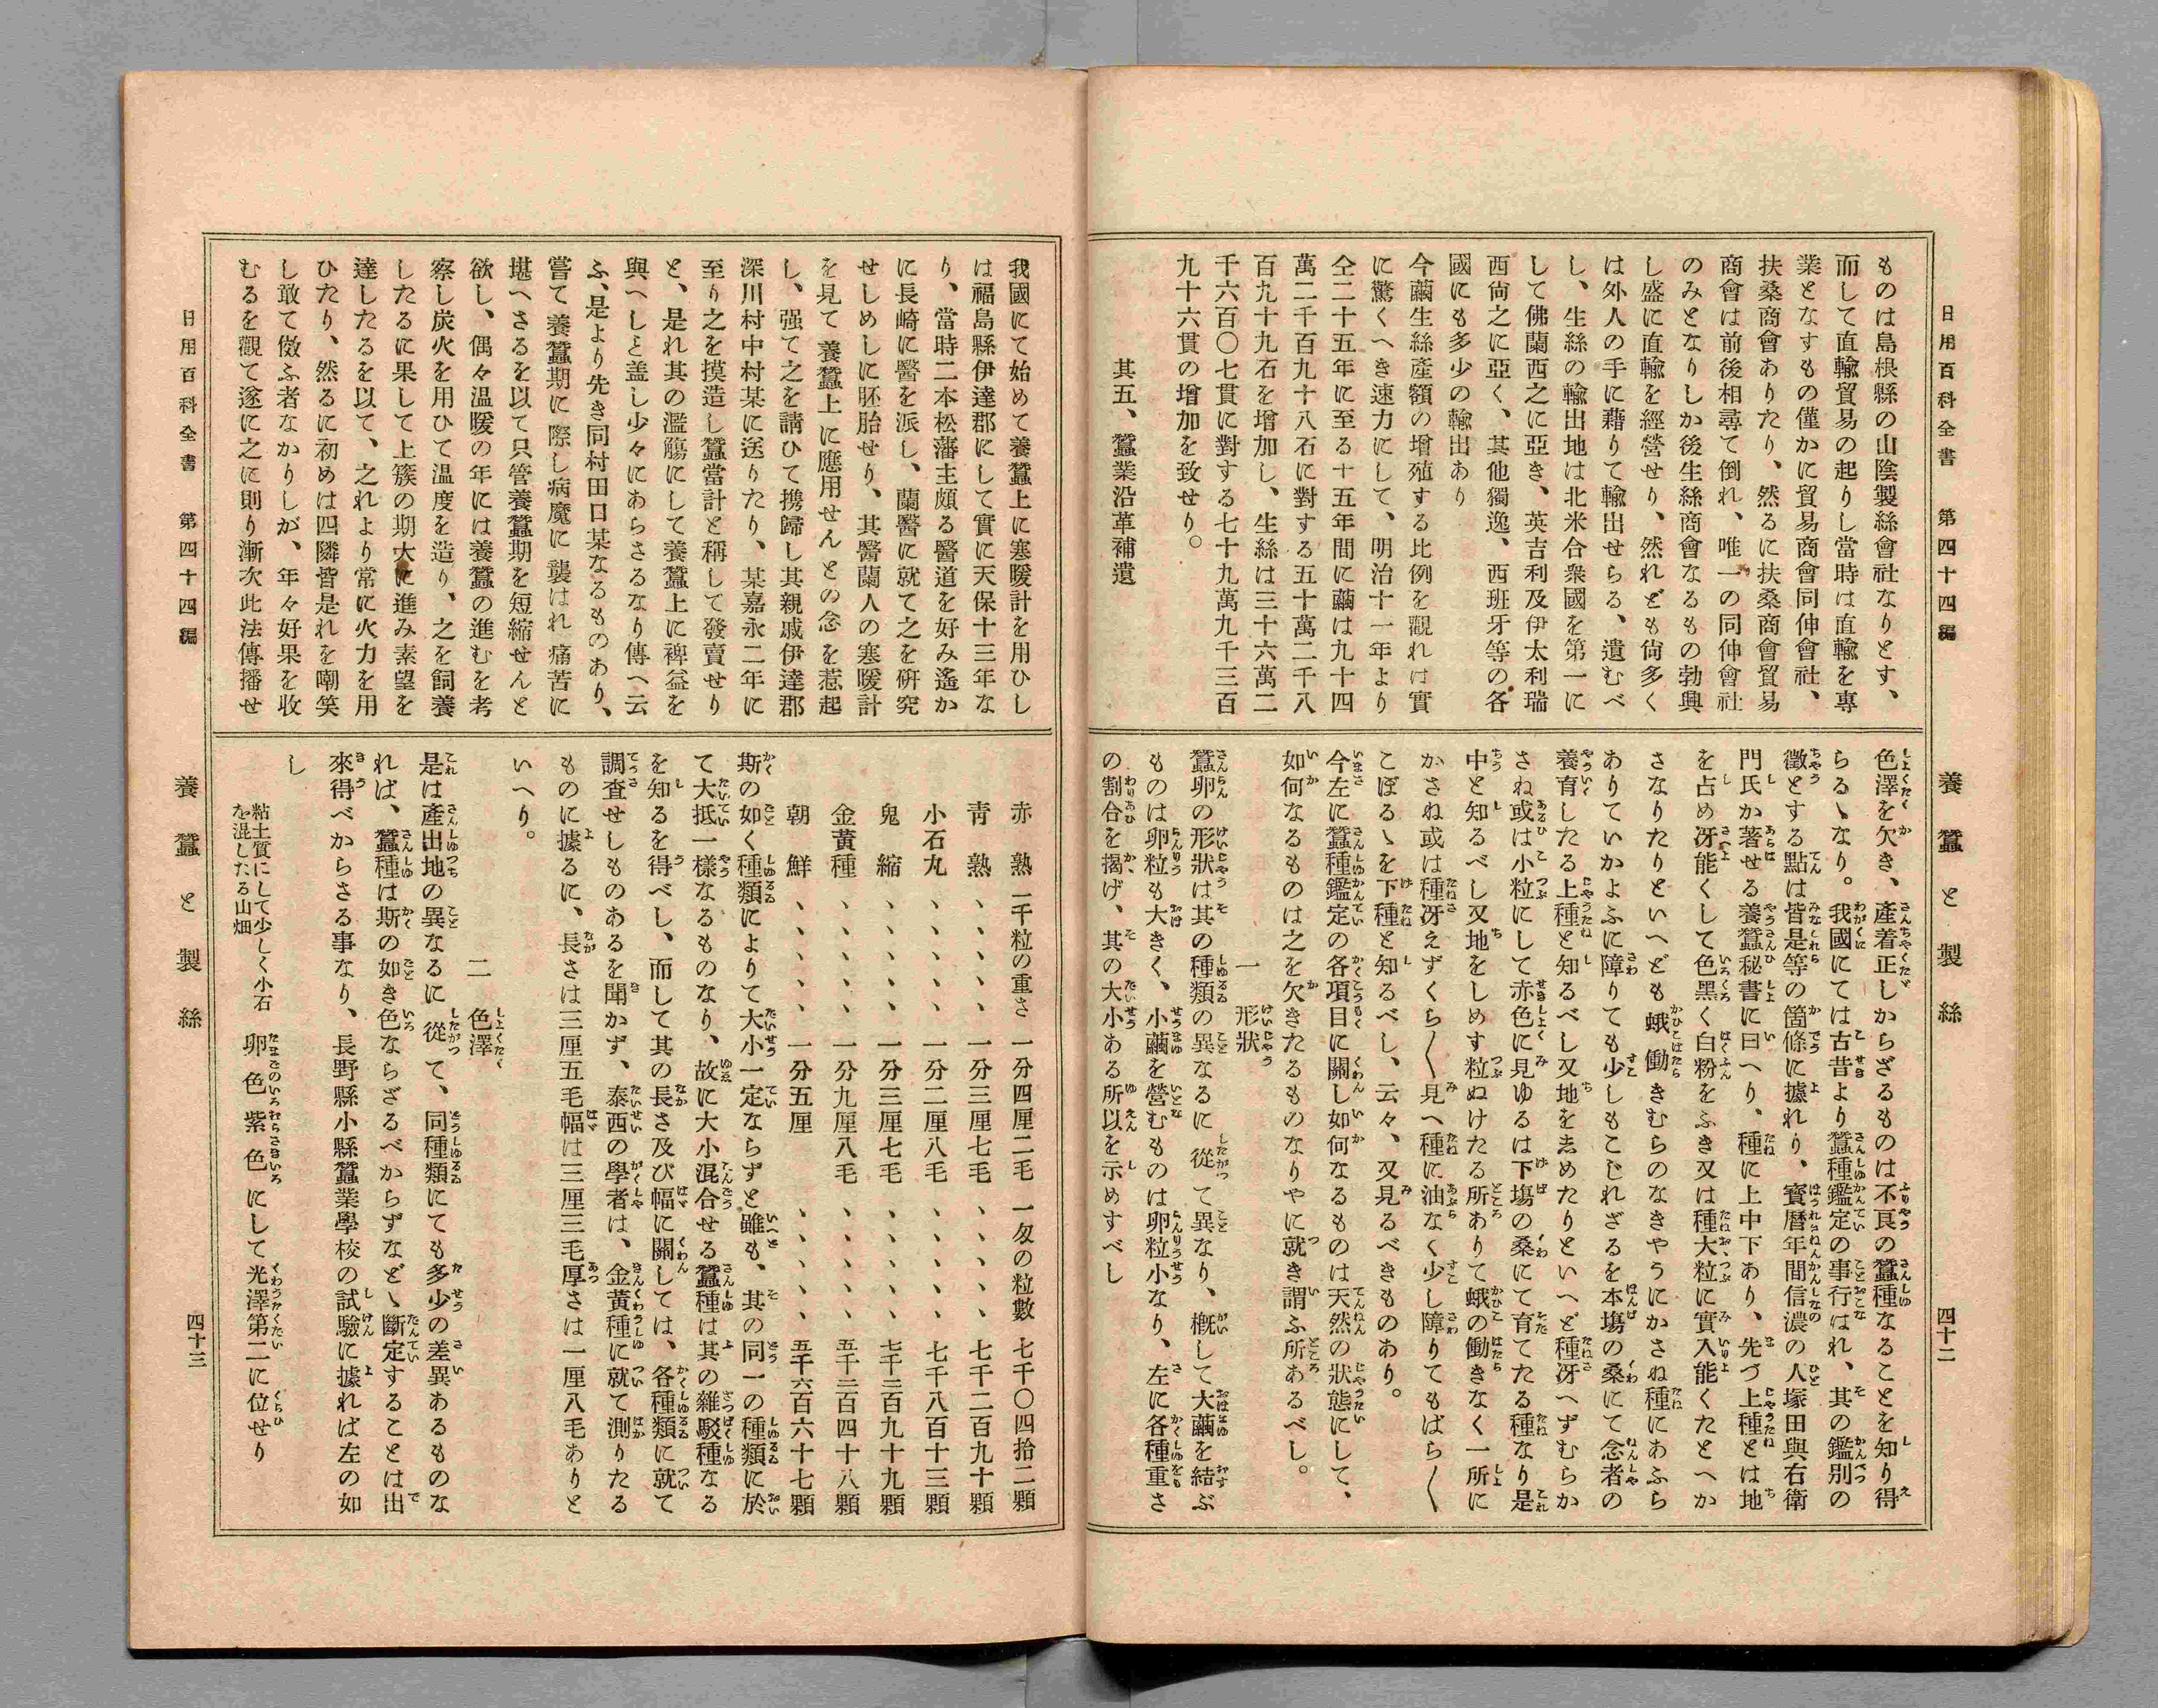 日用百科全書 第四十四編
養蠶と製絲
四十二
ものは島根縣の山陰製絲會社なりとす、
而して直輸貿易の起りし當時は直輸を專
業となすもの僅かに貿易商會同伸會社、
扶桑商會ありたり、然るに扶桑商會貿易
商會は前後相尋て倒れ、唯一の同伸會社
のみとなりしか後生絲商會なるもの勃興
し盛に直輸を經營せり、然れども尙多く
は外人の手に藉りて輸出せらる、遺むべ
し、生絲の輸出地は北米合衆國を第一に
して佛蘭西之に亞き、英吉利及伊太利瑞
西尙之に亞く、其他獨逸、西班牙等の各
國にも多少の輸出あり
今繭生絲產額の增殖する比例を觀れは實
に驚くへき速力にして、明治十一年より
仝二十五年に至る十五年間に繭は九十四
萬二千百九十八石に對する五十萬二千八
百九十九石を增加し、生絲は三十六萬二
千六百〇七貫に對する七十九萬九千三百
九十六貫の增加を致せり。
其五、蠶業沿革補遺
色澤を欠き、產着正しからざるものは不良の蠶種なることを知り得
らるゝなり。我國にては古昔より蠶種鑑定の事行はれ、其の鑑別の
徵とする點は皆是等の箇條に據れり、寶曆年間信濃の人塚田與右衛
門氏か著せる養蠶秘書に曰へり、種に上中下あり、先づ上種とは地
を占め冴能くして色黑く白粉をふき又は種大粒に實入能くたとへか
さなりたりといへども蛾働きむらのなきやうにかさね種にあふら
ありていかよふに障りても少しもこじれざるを本塲の桑にて念者の
養育したる上種と知るべし又地を志めたりといへど種冴へずむらか
さね或は小粒にして赤色に見ゆるは下塲の桑にて育てたる種なり是
中と知るべし又地をしめす粒ぬけたる所ありて蛾の働きなく一所に
かさね或は種冴えずくら〱見へ種に油なく少し障りてもばら〱
こぼるゝを下種と知るべし、云々、又見るべきものあり。
今左に蠶種鑑定の各項目に關し如何なるものは天然の狀態にして、
如何なるものは之を欠きたるものなりやに就き謂ふ所あるべし。
一 形狀
蠶卵の形狀は其の種類の異なるに從て異なり、槪して大繭を結ぶ
ものは卵粒も大きく、小繭を營むものは卵粒小なり、左に各種重さ
の割合を揭げ、其の大小ある所以を示めすべし
我國にて始めて養蠶上に寒暖計を用ひし
は福島縣伊達郡にして實に天保十三年な
り、當時二本松藩主頗る醫道を好み遙か
に長崎に醫を派し、蘭醫に就て之を硏究
せしめしに胚胎せり、其醫蘭人の寒暖計
を見て養蠶上に應用せんとの念を惹起
し、强て之を請ひて携歸し其親戚伊達郡
深川村中村某に送りたり、某嘉永二年に
至り之を摸造し蠶當計と稱して發賣せり
と、是れ其の濫觴にして養蠶上に裨益を
與へしと盖し少々にあらさるなり傳へ云
ふ、是より先き同村田口某なるものあり、
嘗て養蠶期に際し病魔に襲はれ痛苦に
堪へさるを以て只管養蠶期を短縮せんと
欲し、偶々温暖の年には養蠶の進むを考
察し炭火を用ひて温度を造り、之を飼養
したるに果して上簇の期大に進み素望を
達したるを以て、之れより常に火力を用
ひたり、然るに初めは四隣皆是れを嘲笑
し敢て傚ふ者なかりしが、年々好果を收
むるを觀て遂に之に則り漸次此法傳播せ
赤熟 一千粒の重さ 一分四厘二毛 一匁の粒數 七千〇四拾二顆
靑熟 、、、、、 一分三厘七毛 、、、、、 七千二百九十顆
小石丸 、、、、、 一分二厘八毛 、、、、、 七千八百十三顆
鬼縮 、、、、、 一分三厘七毛 、、、、、 七千二百九十九顆
金黃種 、、、、、 一分九厘八毛 、、、、、 五千二百四十八顆
朝鮮 、、、、、 一分五厘 、、、、、 五千六百六十七顆
斯の如く種類によりて大小一定ならずと雖も、其の同一の種類に於
て大抵一樣なるものなり、故に大小混合せる蠶種は其の雜駁種なる
を知るを得べし、而して其の長さ及び幅に關しては、各種類に就て
調査せしものあるを聞かず、泰西の學者は、金黃種に就て測りたる
ものに據るに、長さは三厘五毛幅は三厘三毛厚さは一厘八毛ありと
いへり。
二 色澤
是は產出地の異なるに從て、同種類にても多少の差異あるものな
れば、蠶種は斯の如き色ならざるべからずなどゝ斷定することは出
來得べからさる事なり、長野縣小縣蠶業學校の試驗に據れば左の如
し
粘土質にして少しく小石
を混したる山畑
卵色紫色にして光澤第二に位せり
日用百科全書 第四十四編
養蠶と製絲
四十三